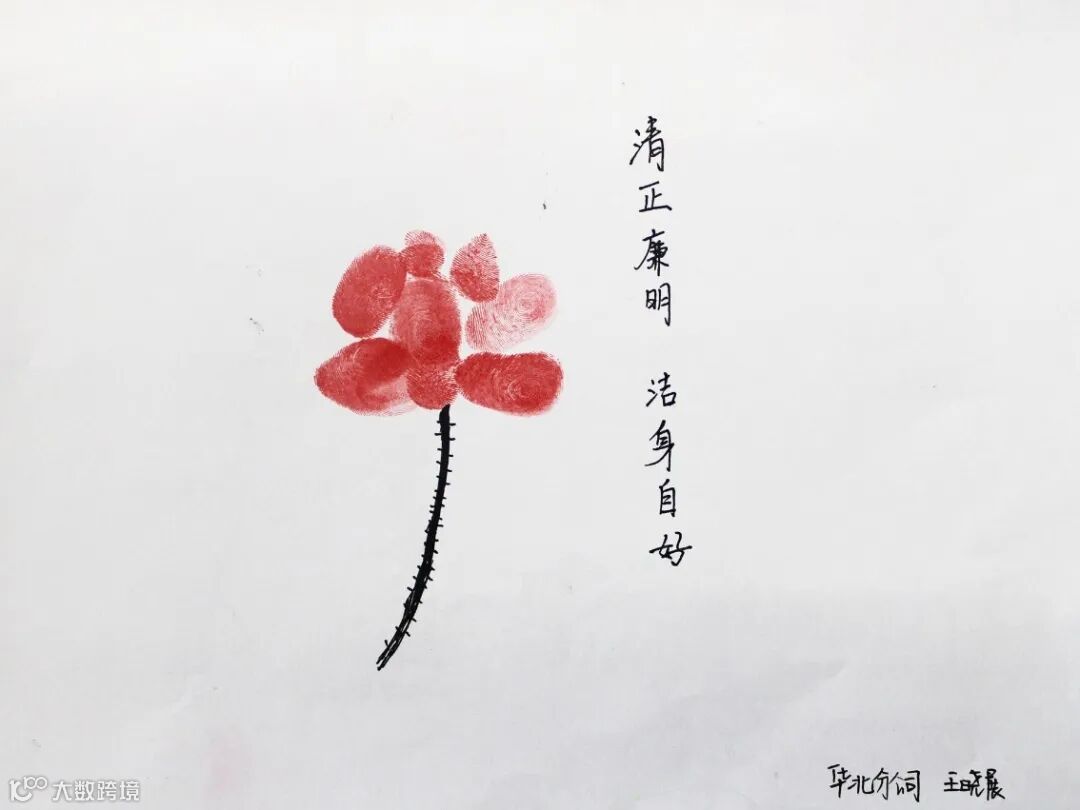 清正廉明 洁身自好
华北分公司 王晓展
大数跨境